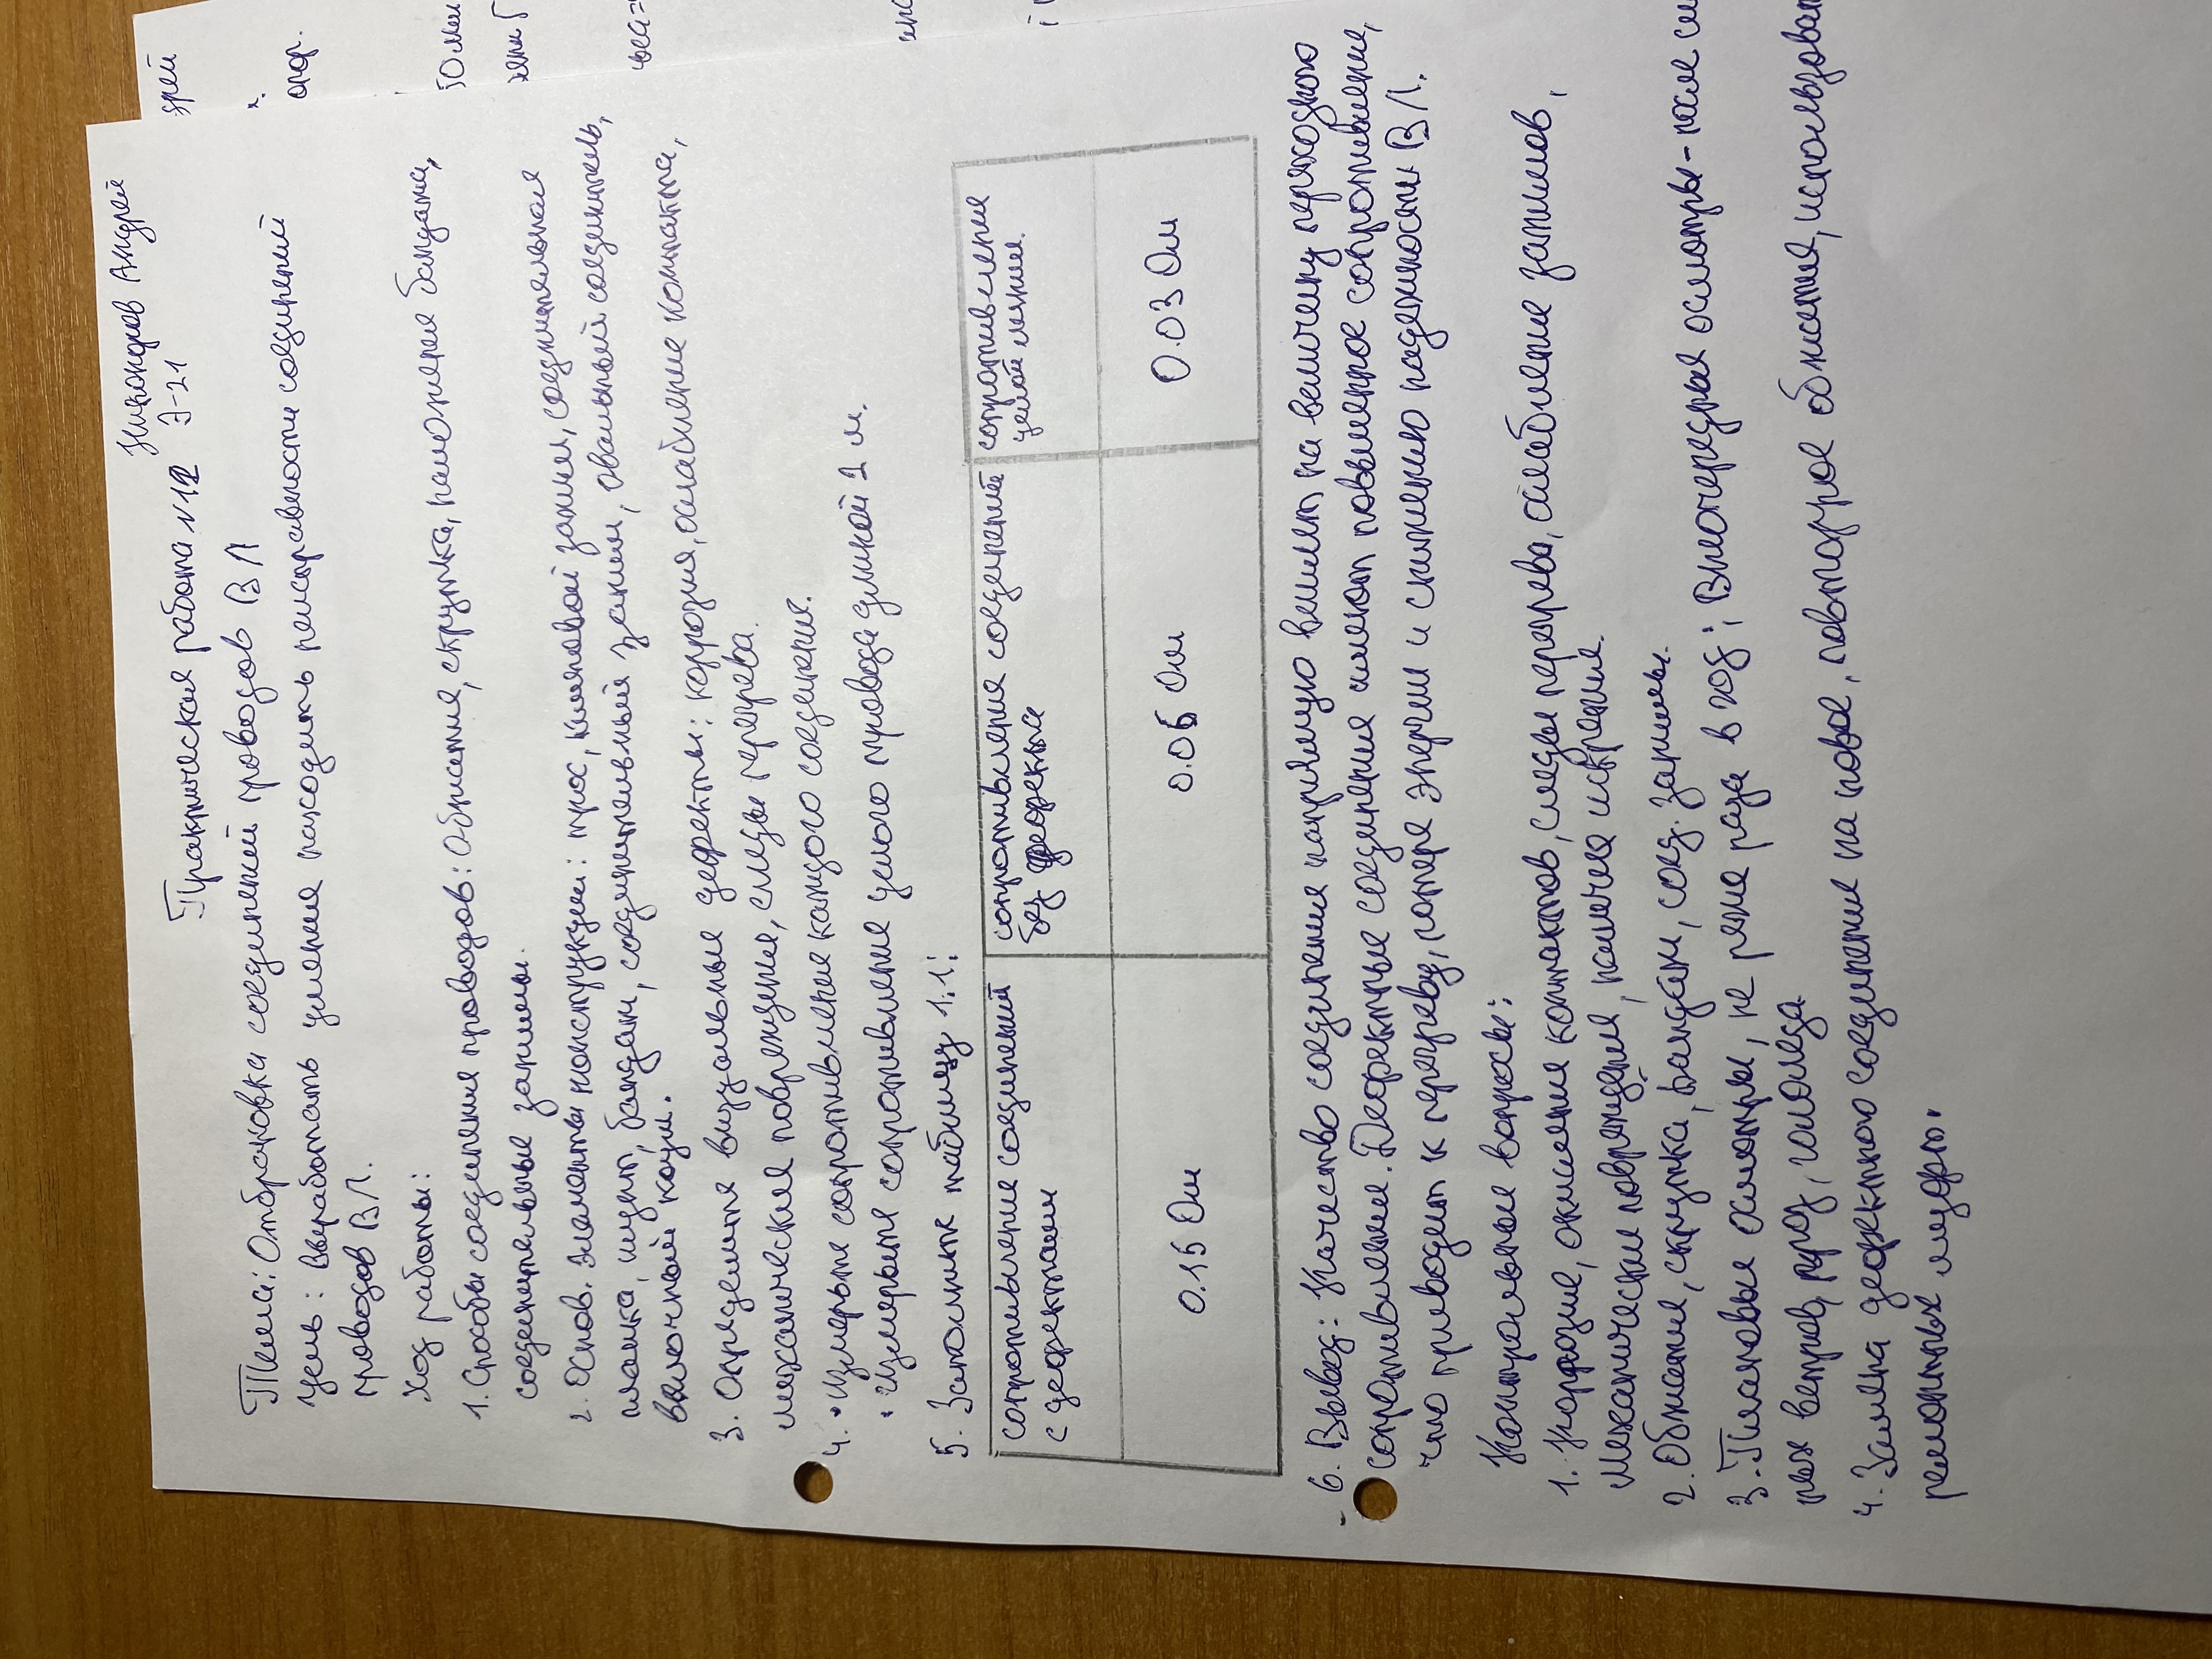 Никоноров Андрей
Практическая работа №12 Э-21
Тема: Отбраковка соединений проводов ВЛ
Цель: Выработать умения находить неисправности соединений
проводов ВЛ.
Ход работы:
1. Способы соединения проводов: Обжатие, скрутка, наложение бандажа,
соединительные зажимы.
2. Основ. элементы конструкции: трос, клиновой зажим, соединительная
планка, шунт, бандаж, соединительный зажим, овальный соединитель,
коуш.
3. Определите визуальные дефекты: коррозия, ослабление контакта,
механические повреждения, следы перегрева.
4. • Измерьте сопротивление каждого соединения.
• Измерьте сопротивление целого провода длиной 1 м.
5. Заполните таблицу 1.1:
сопротивление соединений с дефектами
сопротивление соединений без дефекта
сопротивление целой линии.
0.15 Ом
0.05 Ом
0.03 Ом
6. Вывод: Качество соединения напрямую влияет на величину переходного
сопротивления. Дефектные соединения имеют повышенное сопротивление,
что приводит к перегреву, потере энергии и снижению надежности ВЛ.
Контрольные вопросы:
1. Коррозия, окисление контактов, следы перегрева, ослабление зажимов,
механические повреждения, наличие искрения.
2. Обжатие, скрутка, бандаж, соед. зажимы.
3. Плановые осмотры, не реже раза в год; Внеочередные осмотры - после силь
ных ветров, гроз, гололеда.
4. Замена дефектного соединения на новое, повторное обжатие, использован
ремонтных муфт.
зрей
х.
опор.
50 мм